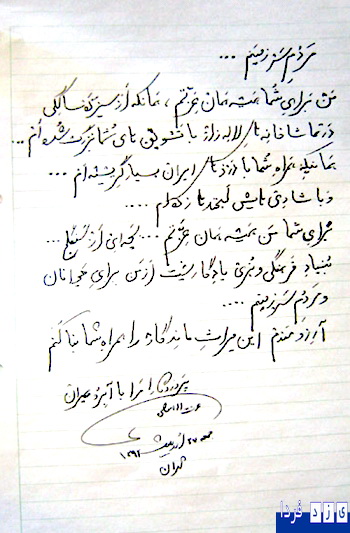 مردم سرزمینم ...
من برای شما همیشه همان عزتم ، همانکه از سیزده سالگی
در تماشاخانه های لاله زار با تشویق های شما بزرگ شده ام ...
همانیکه همراه شما با درد های ایران بسیار گریسته ام ...
و با شادی هایش لبخندها زده ام ....
برای شما من همیشه همان عزتم ... بچه ای از سنگلج ...
بنیاد فرهنگی و هنری یادگاریست از من برای جوانان
و مردم سرزمینم ....
آرزومندم این میراث ماندگار را همراه شما بنا کنم
پروردگارا مرا با آبرو بمیران
۲۷ اردیبهشت ۱۳۹۲
تهران
یزد فردا